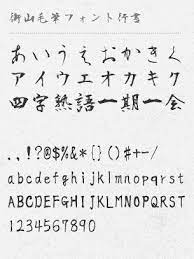 衡山毛筆フォント行書
あいうえおかきく
アイウエオカキク
四字熟語一期一会
,.!?@$&*{}()#+-/
abcdefghijklmnopqrst
ABCDEFGHIJKLMNOPQRST
1234567890